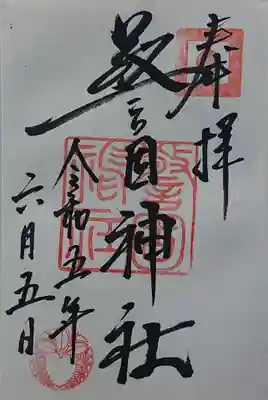 奉拝
警固神社
令和五年
六月五日